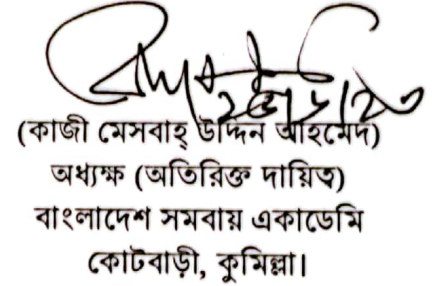 (কাজী মেসবাহ্ উদ্দিন আহমেদ)
অধ্যক্ষ (অতিরিক্ত দায়িত্ব)
বাংলাদেশ সমবায় একাডেমি
কোটবাড়ী, কুমিল্লা।